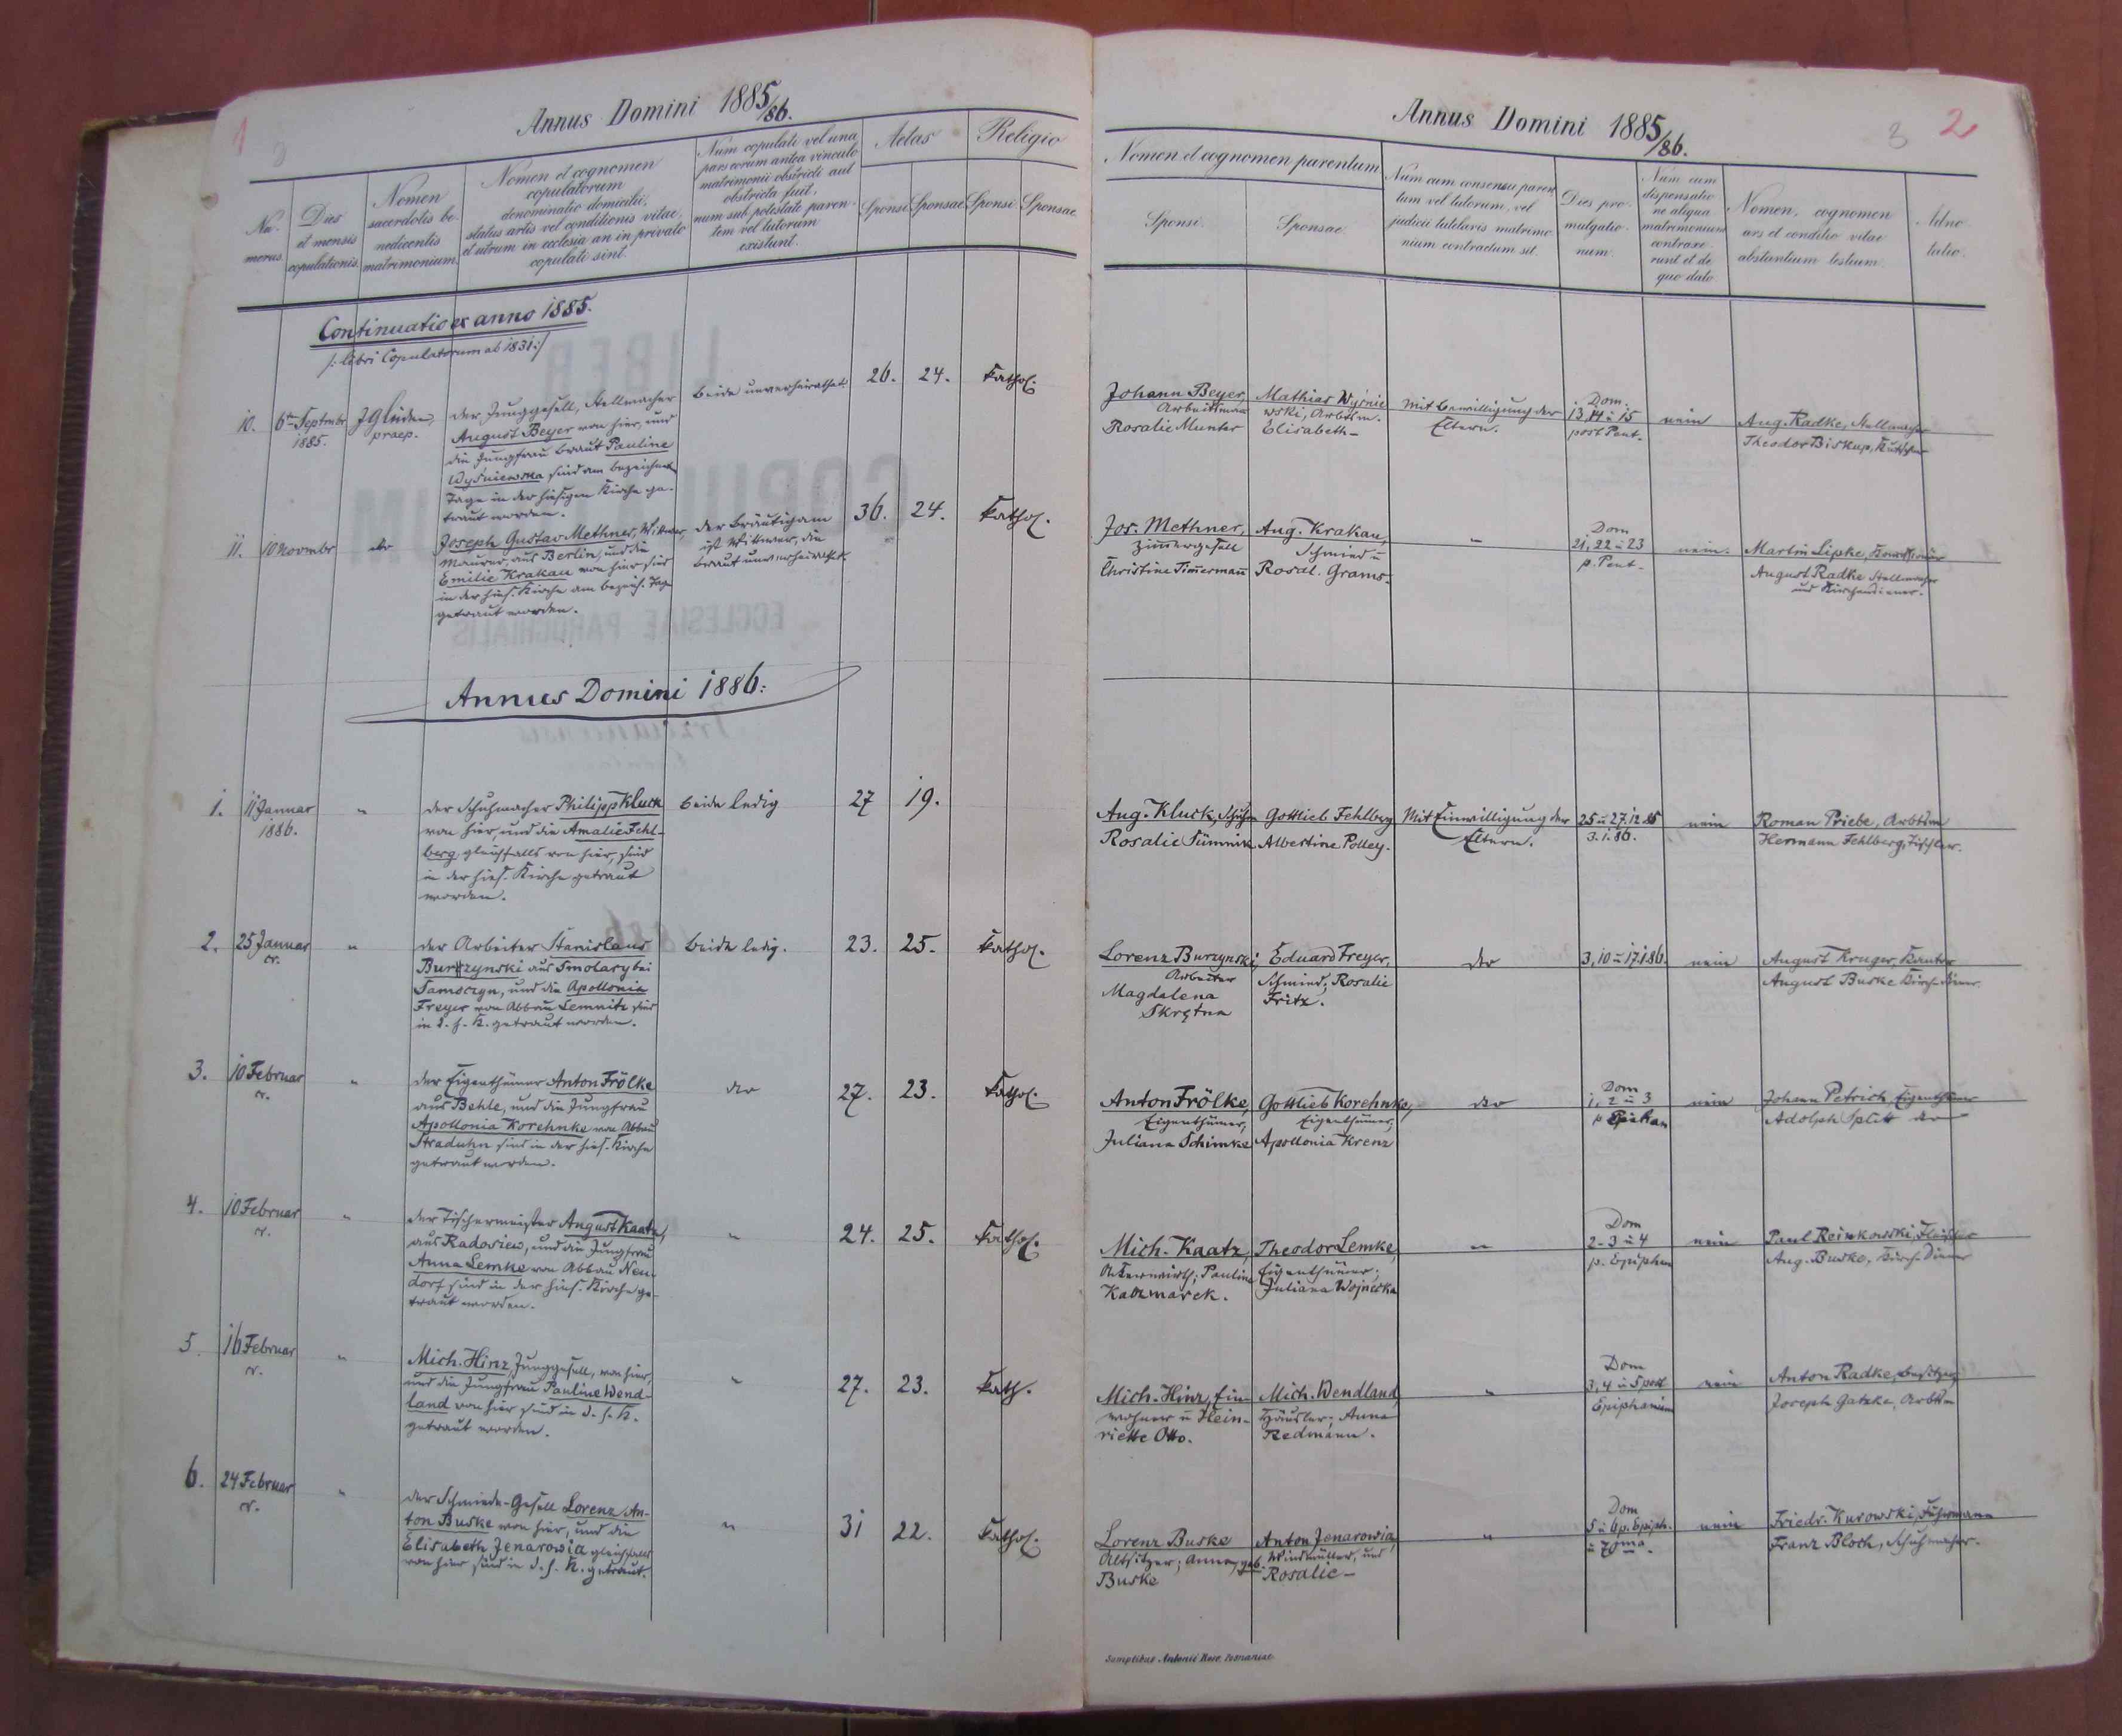 1
Annus Domini 1885/86.
Numerus
Dies et mensis copulationis.
Nomen sacerdotis benedicentis matrimonium.
Nomen et cognomen copulatorum
denominatio domicilii,
status artis vel conditionis vitae,
et utrum in ecclesia an in privato
copulati sint.
Num copulati vel una
pars eorum antea vinculo
matrimonii obstricti aut
obstricta fuit,
num sub potestate paren-
tem vel tutorum
existunt.
Aetas
Sponsi
Sponsae
Religio
Sponsi
Sponsae
Continuatio ex anno 1885.
/: libri Copulatorum ab 1831:/
10.
6ten Septmbr
1885.
praep.
der Junggesell, Stellmacher
August Beyer von hier, und
die Jungfrau Braut Pauline
Wyśniewska sind am bezeichnet.
Tage in der hiesigen Kirche ge-
traut worden.
beide unverheirathet
26.
24.
Kathol.
11.
10 Novmbr
dto
Joseph Gustav Methner, Wittwer,
Maurer, aus Berlin, und die
Emilie Krakau von hier sind
in der hies. Kirche am bezeich. Tage
getraut worden.
der Bräutigam
ist Wittwer, die
Braut unverheirathet.
36.
24.
Kathol.
Annus Domini 1886:
1.
11 Januar
1886.
"
der Schuhmacher Philipp Kluck
von hier, und die Amalie Fehl-
berg gleichfalls von hier, sind
in der hies. Kirche getraut
worden.
beide ledig
27
19.
2.
25 Januar
cr.
"
der Arbeiter Stanislaus
Burzynski aus Smolary bei
Samoczyn, und die Apollonia
Freyer von Abbau Lemnitz sind
in d. h. K. getraut worden.
beide ledig.
23.
25.
Kathol.
3.
10 Februar
cr.
"
der Eigenthümer Anton Frölke
aus Behle, und die Jungfrau
Apollonia Korehnke von Abbau
Straduhn sind in der hies. Kirche
getraut worden.
dto
27.
23.
Kathol.
4.
10 Februar
cr.
"
der Tischermeister August Kaatz,
aus Radosiew, und die Jungfrau
Anna Lemke von Abbau Neu-
dorf sind in der hies. Kirche ge-
traut worden.
"
24.
25.
Kathol.
5.
16 Februar
cr.
"
Mich. Hinz, Junggesell, von hier,
und die Jungfrau Pauline Wend-
land von hier sind in d. h. K.
getraut worden.
"
27.
23.
Kath.
6.
24 Februar
cr.
"
der Schmiede-Gesell Lorenz An-
ton Buske von hier, und die
Elisabeth Jenarowia gleichfalls
von hier sind in d. h. K. getraut.
"
31
22.
Kathol.
Annus Domini 1885/86.
3
2
Nomen et cognomen parentum
Sponsi.
Sponsae.
Num cum consensu paren
tum vel tutorum, vel
judicii tutelaris matrimo
nium contractum sit.
Dies pro-
mulgatio-
num.
Num cum
dispensatio
ne aliqua
matrimonium
contraxe-
runt et de
quo dato.
Nomen, cognomen
ars et conditio vitae
abstantium testium.
Adno
tatio.
Johann Beyer,
Arbeitsmann
Rosalie Munter
Mathias Wyśnie
wski, Arbtsm.
Elisabeth –
Mit Bewilligung der
Eltern.
Dom.
13, 14 u 15
post Pent.
nein
Aug. Radke, Stellmacher
Theodor Biskup, Kutscher
Jos. Methner,
Zimmergesell
Christine Timmermann
Aug. Krakau,
Schmied u
Rosal. Grams.
–
Dom
21, 22 u 23
p. Pent.
nein.
Martin Lipke,
August Radke Stellmacher
und Kirchendiener.
Aug. Kluck, Schuhm
Rosalie Sümnik
Gottlieb Fehlberg
Albertine Polley.
Mit Einwilligung der
Eltern.
25 u 27.12 85
3.1.86.
nein
Roman Priebe, Arbtsm
Hermann Fehlberg, Tischler.
Lorenz Burzynski,
Arbeiter
Magdalena
Skrętna
Eduard Freyer,
Schmied; Rosalie
Fritz.
dto
3, 10 u 17.1.86.
nein
August Kruger, Kantor
August Buske Kirch-Diener.
Anton Frölke,
Eigenthümer,
Juliana Schimke
Gottlieb Korehnke,
Eigenthümer,
Apollonia Krenz
dto
Dom
1, 2 u 3
p Epiphan
nein
Johann Petrich, Eigenthümer
Adolph Splitt dto
Mich. Kaatz,
Ackerwirth; Pauline
Kaczmarek.
Theodor Lemke,
Eigenthümer;
Juliana Wojneska
"
Dom
2-3 u 4
p. Epiphan
nein
Paul Reinkowski, Fleischer
Aug. Buske, Kirch-Diener
Mich. Hinz, Ein-
wohner u Hein-
riette Otto.
Mich. Wendland,
Häusler; Anna
Redmann.
"
Dom
3, 4 u 5 post
Epiphaniam
nein
Anton Radke, Besitzer
Joseph Gatzke, Arbtsm
Lorenz Buske
Altsitzer; Anna, geb.
Buske
Anton Jenarowia,
Windmüller, und
Rosalie –
"
Dom
5 u 6 p. Epiph.
u 70ma.
nein
Friedr. Kurowski, Fuhrmann
Franz Bloch, Schuhmacher.
Sumptibus Antonii Rose, Posnaniae